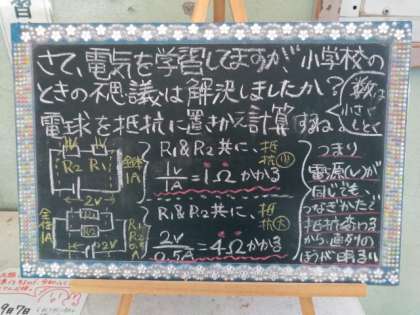 さて、電気を学習してますが、小学校の
ときの不思議は解決しましたか？
数は
小さく
しとく
電球を抵抗に置きかえ計算するね。
R2 R1
全体
1A
2V
R1&R2共に、抵抗㊙
1V/1A=1Ωかかる
全体
1A
2V
R1
R2
0.5A
R1&R2共に、抵抗㊛
2V/0.5A=4Ωかかる
つまり
電源(V)が
同じでも、
つなぎかたで
抵抗変わる
から、直列の
ほうが明るい
9月7日